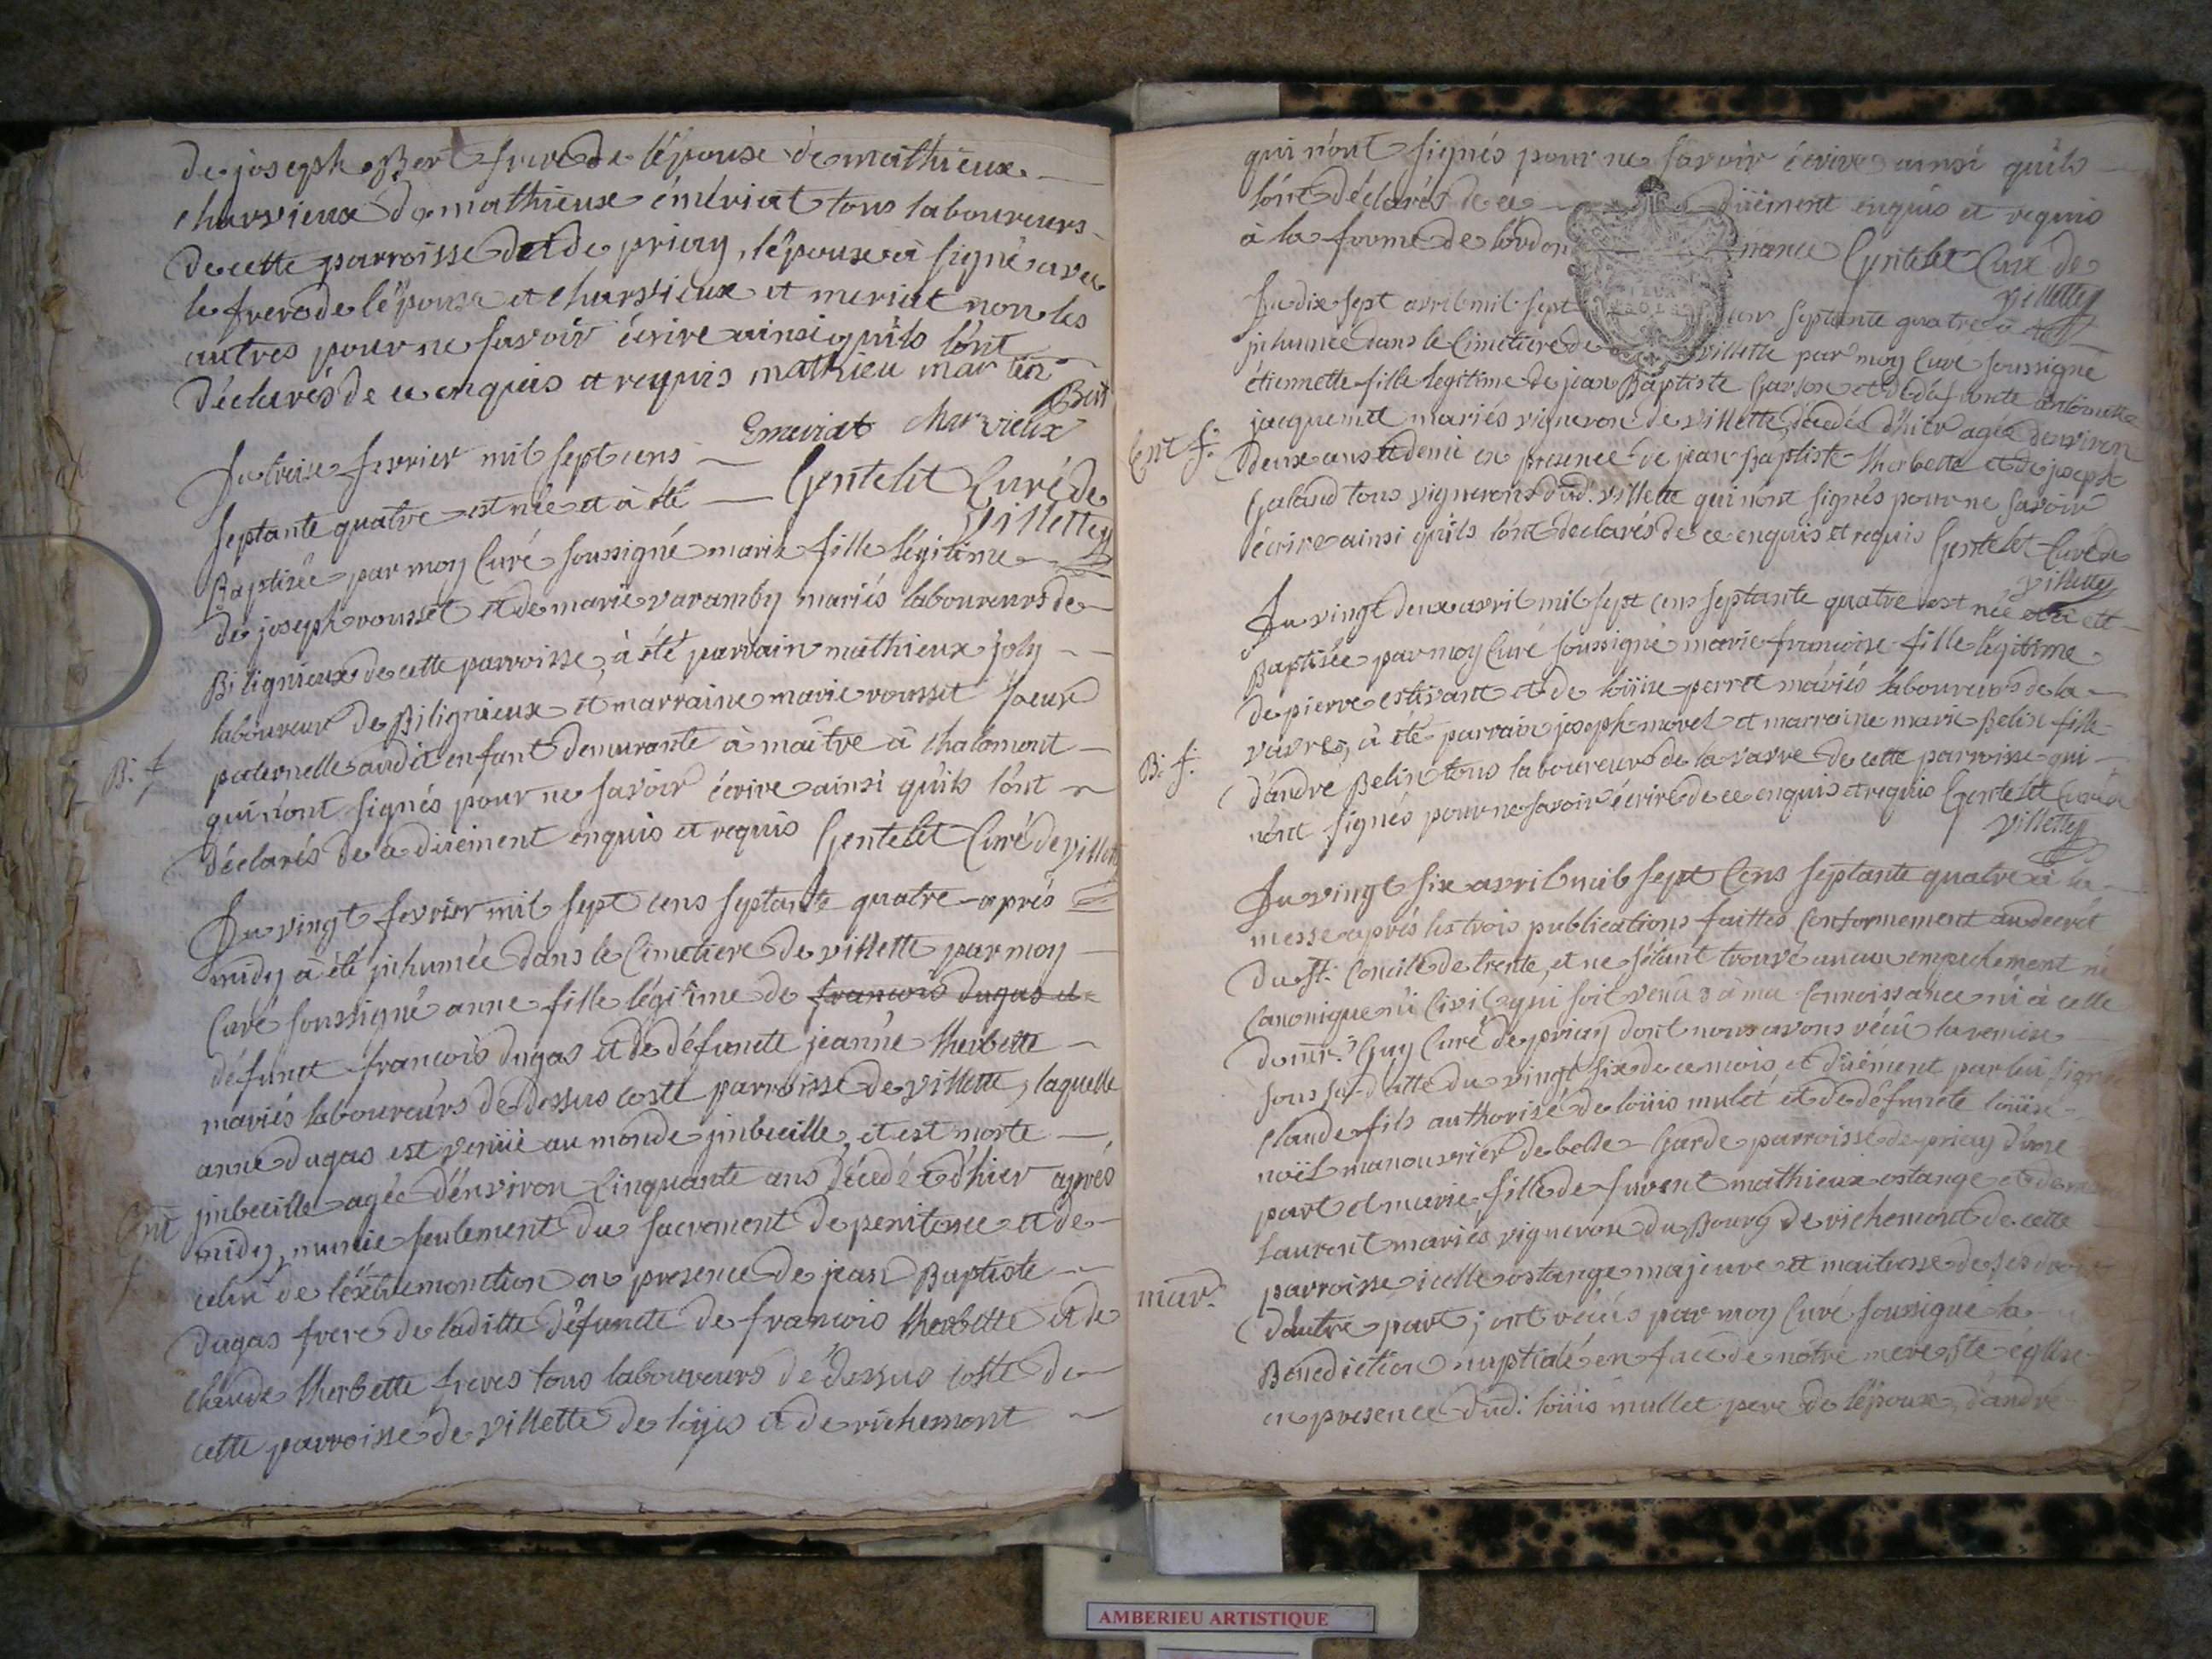 de joseph Bert frere de lépouse de mathieux
charvieux de mathieux émériat tous laboureurs
de cette parroisse et de priay, lépoux a signé avec
le frere de lépouse et charvieux et meriat non les
autres pour ne savoir écrire ainsi quils lónt
déclarés de ce enquis et requis mathieu martin
Bert
Emeriat charvieux
Du treise fevrier mil sept cens
Gentelet Curé de
septante quatre est née et à été
Villette
Baptisée par moy Curé soussigné marie fille légitime
de joseph rousset et de marie varamby mariés laboureurs de
Bilignieux de cette parroisse, à été parrain mathieux joly
laboureur de Bilignieux et marraine marie rousset soeur
B. f.
paternelle audit enfant demurante à maître à chalamont
qui n'ont signés pour ne savoir écrire ainsi quils lónt
déclarés de ce düement enquis et requis Gentelet Curé de villette
Du vingt fevrier mil sept cens septante quatre aprés
midy à été jnhumée dans le Cimetiere de villette par moy
Curé soussigné anne fille légitime de francois dugas et
défunct francois dugas et de défuncte jeanne therbette
mariés laboureurs de dessus coste parroisse de villette, laquelle
anne dugas est venüe au monde jmbecille et est morte
jmbecille agée d'environ Cinquante ans décedée d'hier aprés
Ent
f.
midy, munie seulement du sacrement de penitence et de
celui de léxtremonction en presence de jean Baptiste
dugas frere de laditte défuncte de francois therbette et de
Claude therbette freres tous laboureurs de dessus coste de
cette parroisse de villette de loyes et de richemont
qui n'ont signés pour ne savoir écrire ainsi quils
lónt déclarés de ce düement enquis et requis
à la forme de lordonnance Gentelet Curé de
villette
Du dix sept avril mil sept cens septante quatre à été
jnhumée dans le Cimetiere de villette par moy Curé soussigné
étiennette fille legitime de jean Baptiste et de défuncte antoinette
jacquemet mariés vigneron de villette, decedée d'hier agée d'environ
Ent f.
deux ans et demi en presence de jean Baptiste therbette et de joseph
Galand tous vignerons dud. villette qui nónt signés pour ne savoir
écrire ainsi quils lónt declarés de ce enquis et requis Gentelet Curé de
villette
Du vingt deux avril mil sept cens septante quatre est née et à été
Baptisée par moy Curé soussigné marie francoise fille légitime
de pierre estivant et de loüise perret mariés laboureurs de la
vavre, à été parrain joseph morel et marraine marie Belin fille
B. f.
d'andré Belin tous laboureurs de la vavre de cette parroisse qui
nónt signés pour ne savoir écrire de ce enquis et requis Gentelet Curé de
villette
Du vingt six avril mil sept Cens septante quatre à la
messe aprés les trois publications faittes Conformement au decret
du St. Concile de trente, et ne s'étant trouvé aucun empechement ni
Canonique ni Civil qui soit venu à ma Connoissance ni à celle
de mr. Guy Curé de priay dont nous avons récû la remise
sous sa datte du vingt six de ce mois et düement par lui signé
Claude fils authorisé de loüis mulet et de défuncte loüise
noël manouvrier de belle Garde parroisse de priay d'une
part et marie fille de furent mathieux estange et de
Laurent mariés vigneron du Bourg de richemont de cette
mar.
parroisse icelle estange majeure et maitresse de ses droits
d'autre part, ont récûs par moy Curé soussigné la
Benediction nuptiale en face de nôtre mere Ste église
en presence dud. loüis mullet pere de lépoux, d'andré
AMBERIEU ARTISTIQUE